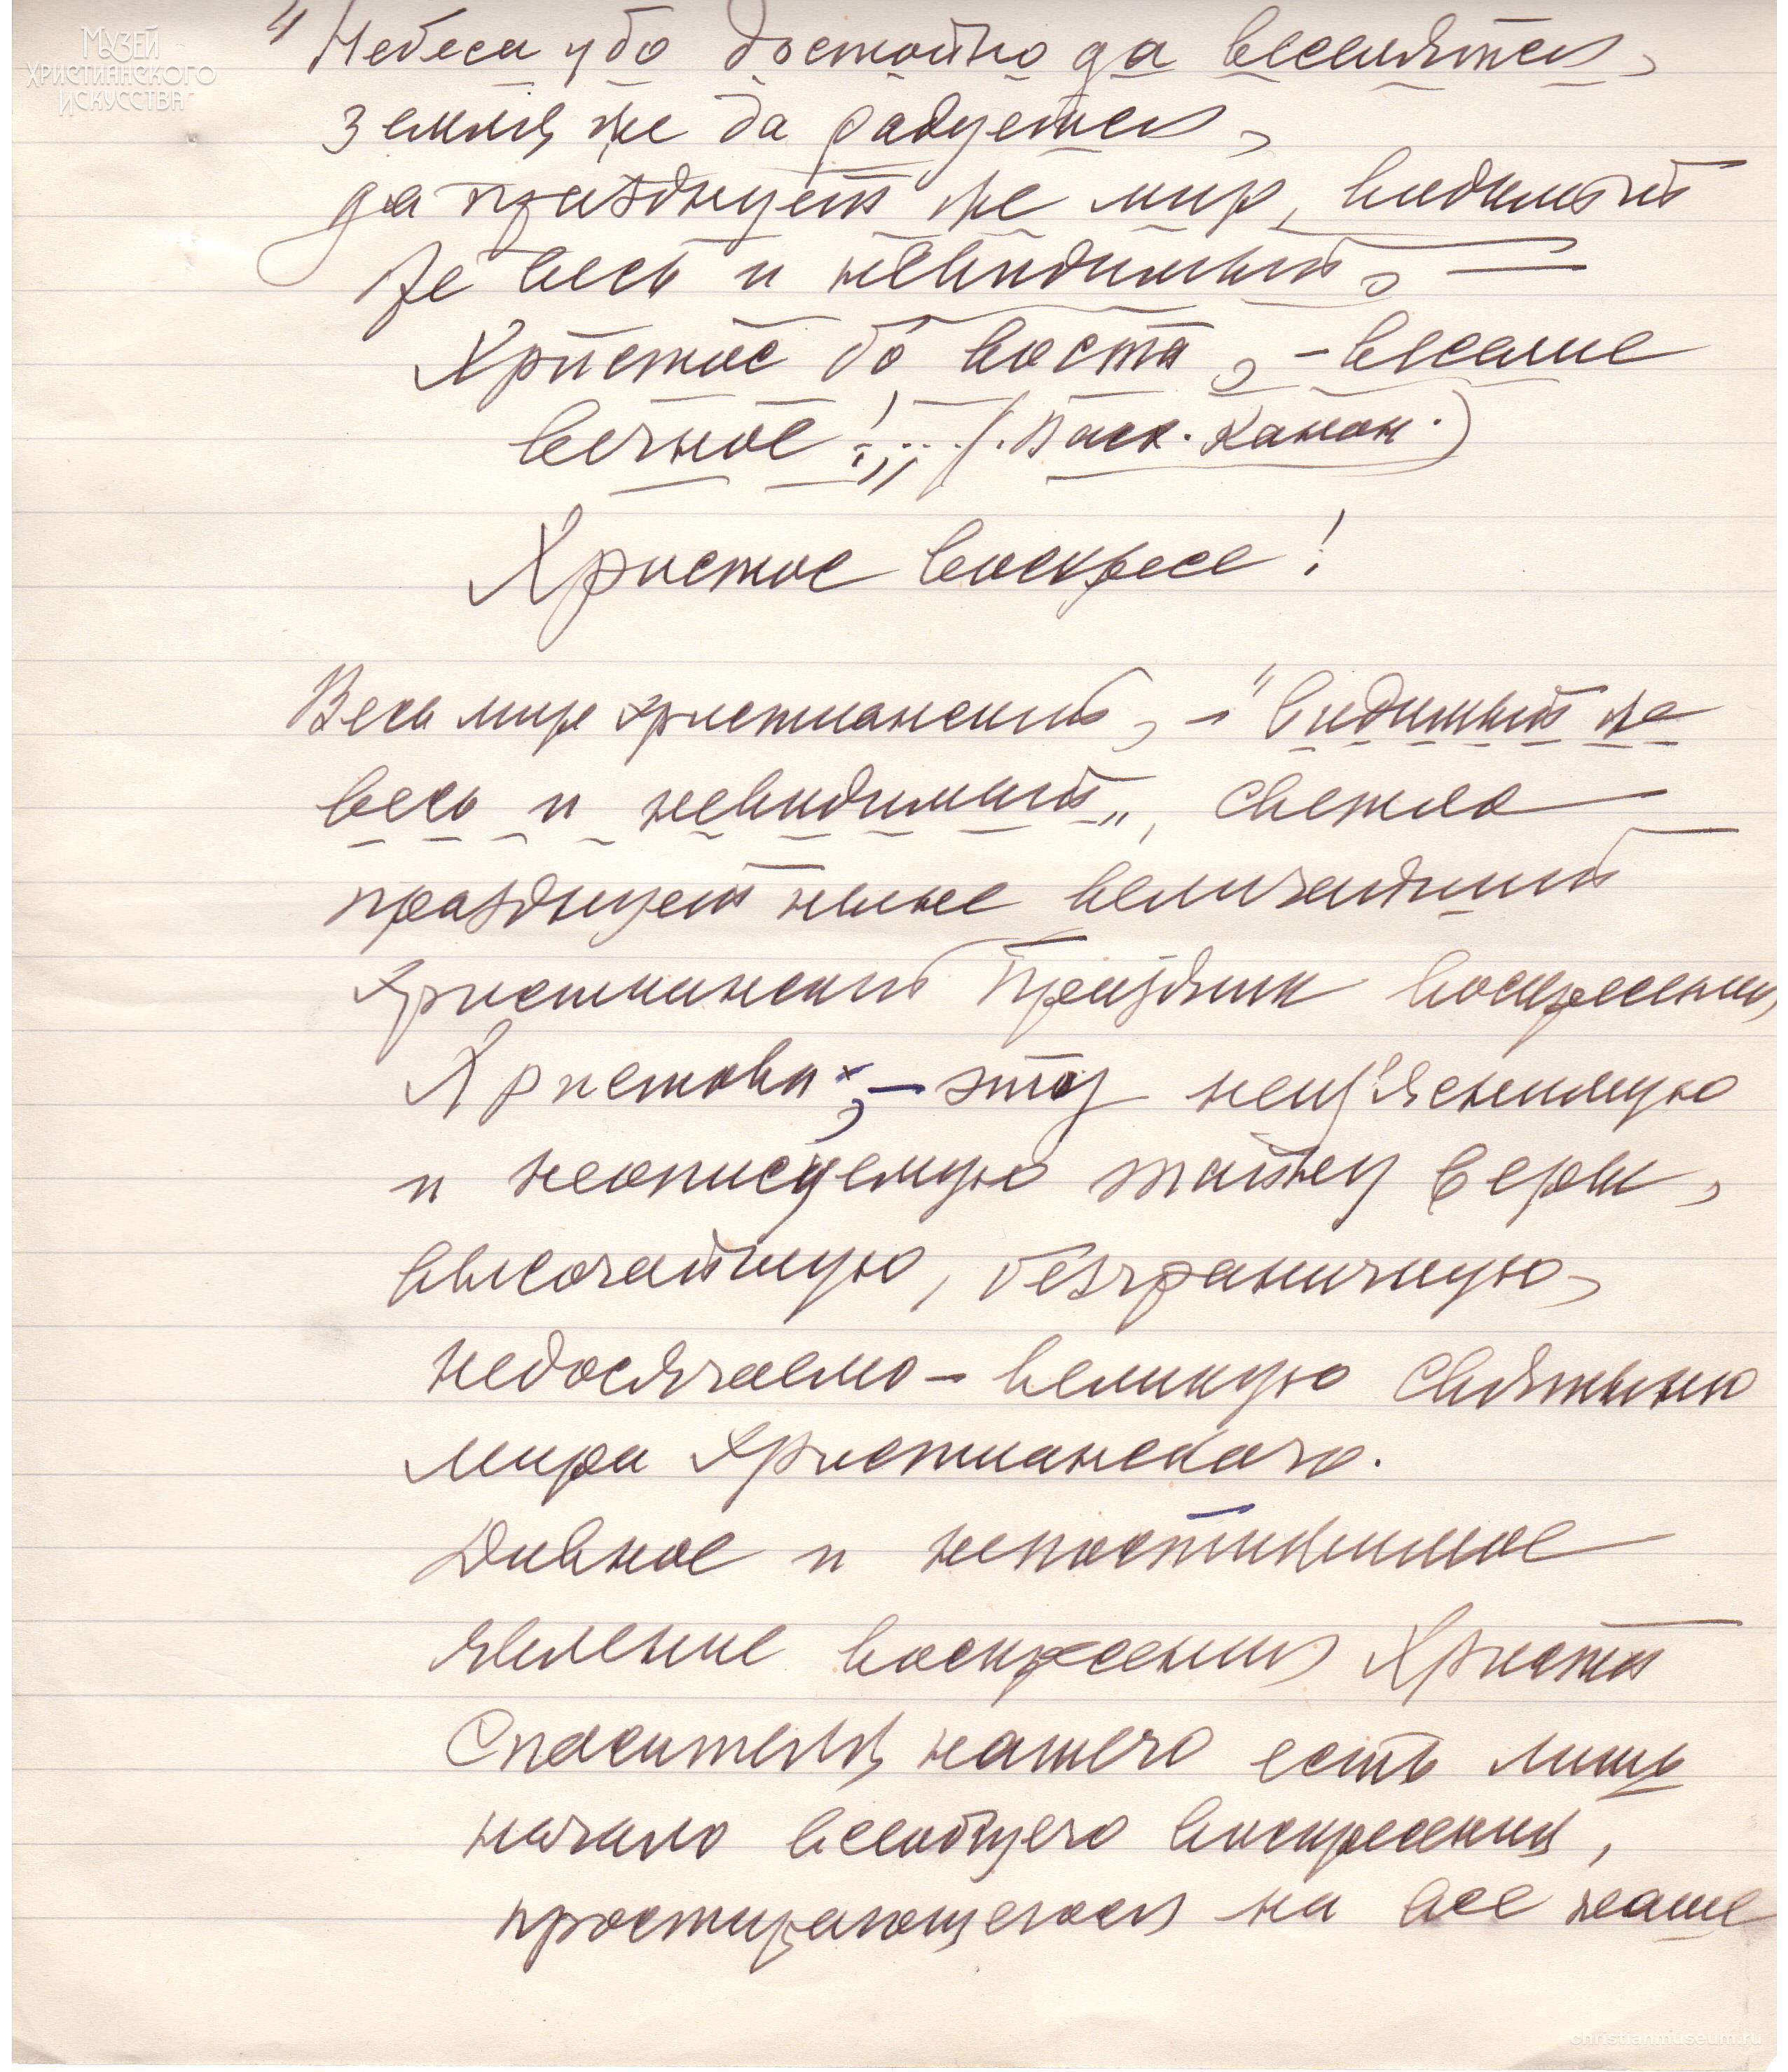 МУЗЕЙ
ХРИСТИАНСКОГО
ИСКУССТВА
" Небеса убо достойно да веселятся,
земля же да радуется,
да празднует же мир, видимый
же весь и невидимый, —
Христос бо воста, – веселие
вечное!..." (. Пасх. Канон.)
Христос воскресе!
Весь мир христианский, – "видимый же
весь и невидимый", светло
празднует ныне величайший
христианский Праздник воскресения
Христова; – эту неиз'яснимую
и неописуемую тайну веры,
высочайшую, безграничную,
недосягаемо – великую Святыню
мира христианского.
Дивное и непостижимое
явление воскресения Христа
Спасителя нашего есть лишь
начало всеобщего воскресения,
простирающегося на все наше
christianmuseum.ru